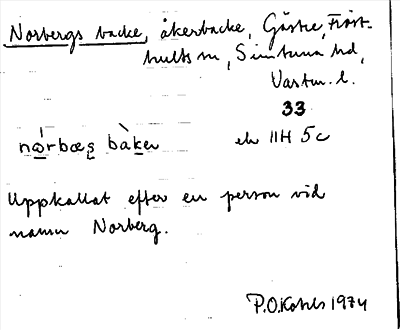 Norbergs backe, åkerbacke, Gäste, Fröst-
hults sn, Simtuna hd,
Vastm. l.
33
nórbæs bàken ek 11H 5c
Uppkallat efter en person vid
namn Norberg.
P.O.Kohls 1974